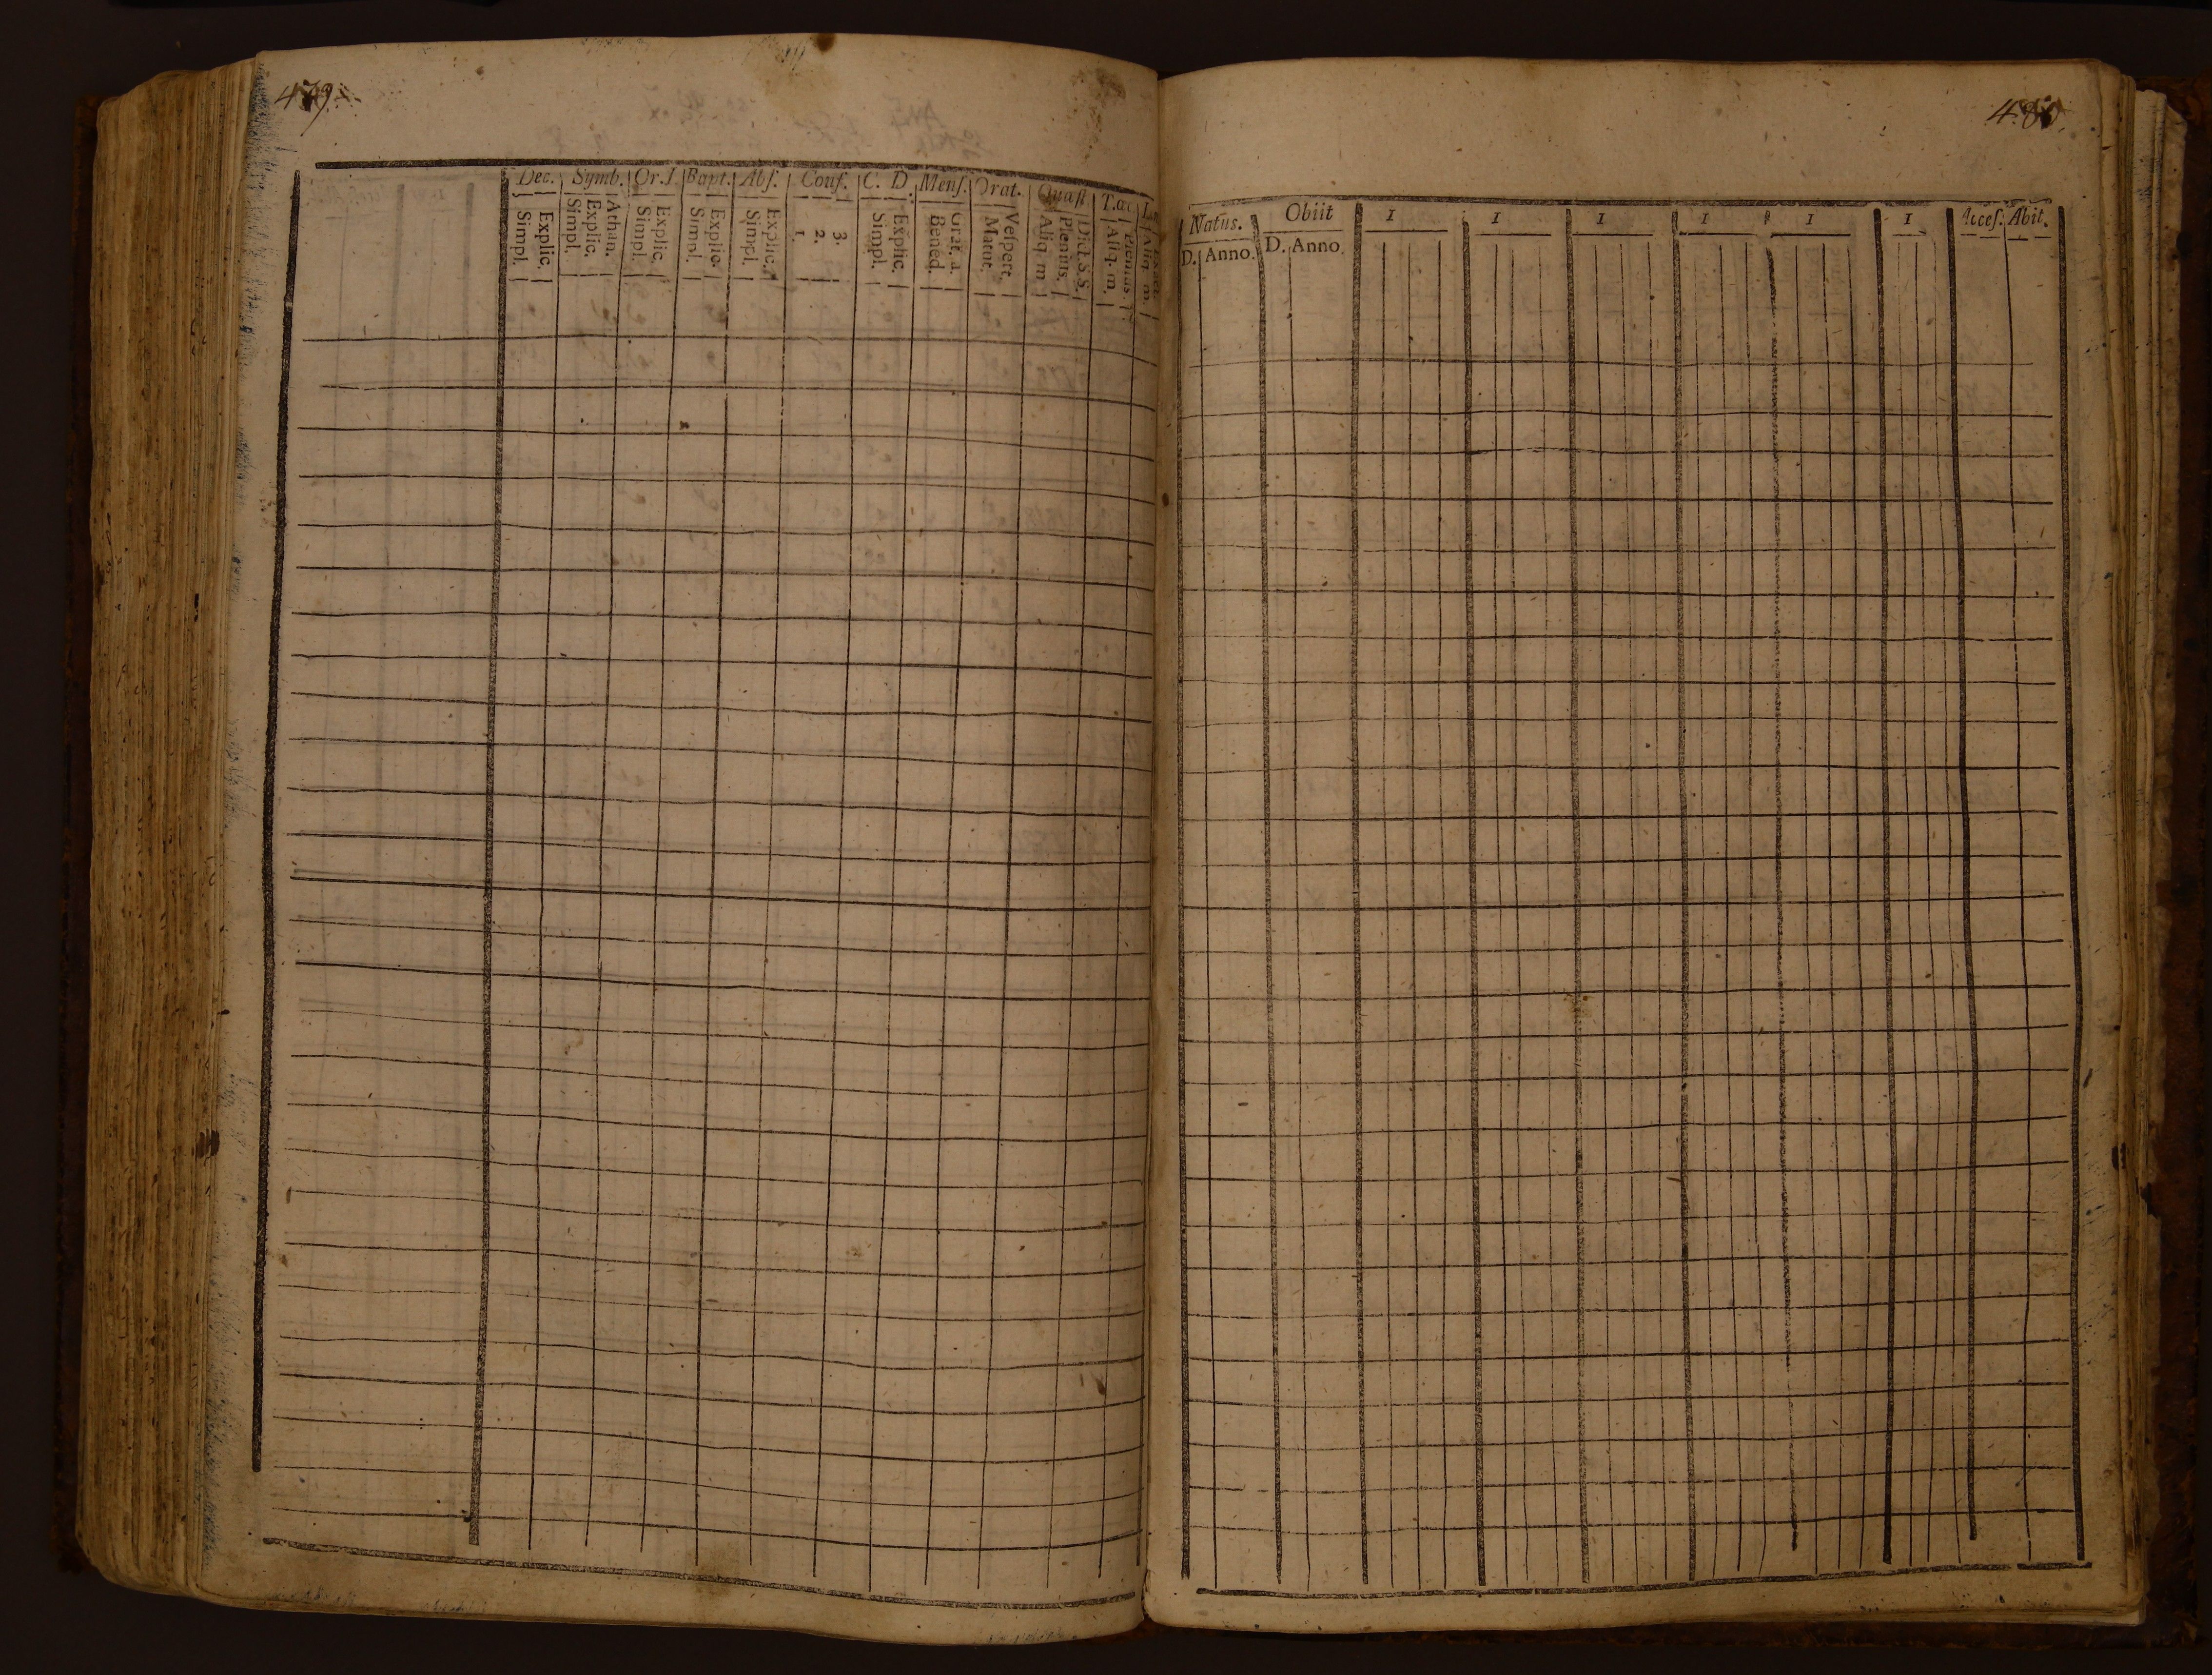 479.
Dec. Symb. Or. Bapt. Abs. Conf. C. D. Mens. Orat. Quæst. T.œc.
Explic. Simpl. Athan. Explic. Simpl. Explic. Simpl. Explic. Simpl. Explic. Simpl. 3. 2. 1. Explic. Simpl. Grat. a. Bened. Vespert. Matut. Dict. S.S. Plenius. Aliq. m. Plenius. Aliq. m. Aliq. m.
480.
Natus. Obiit I I I I I I Acces. Abit.
D. Anno. D. Anno.